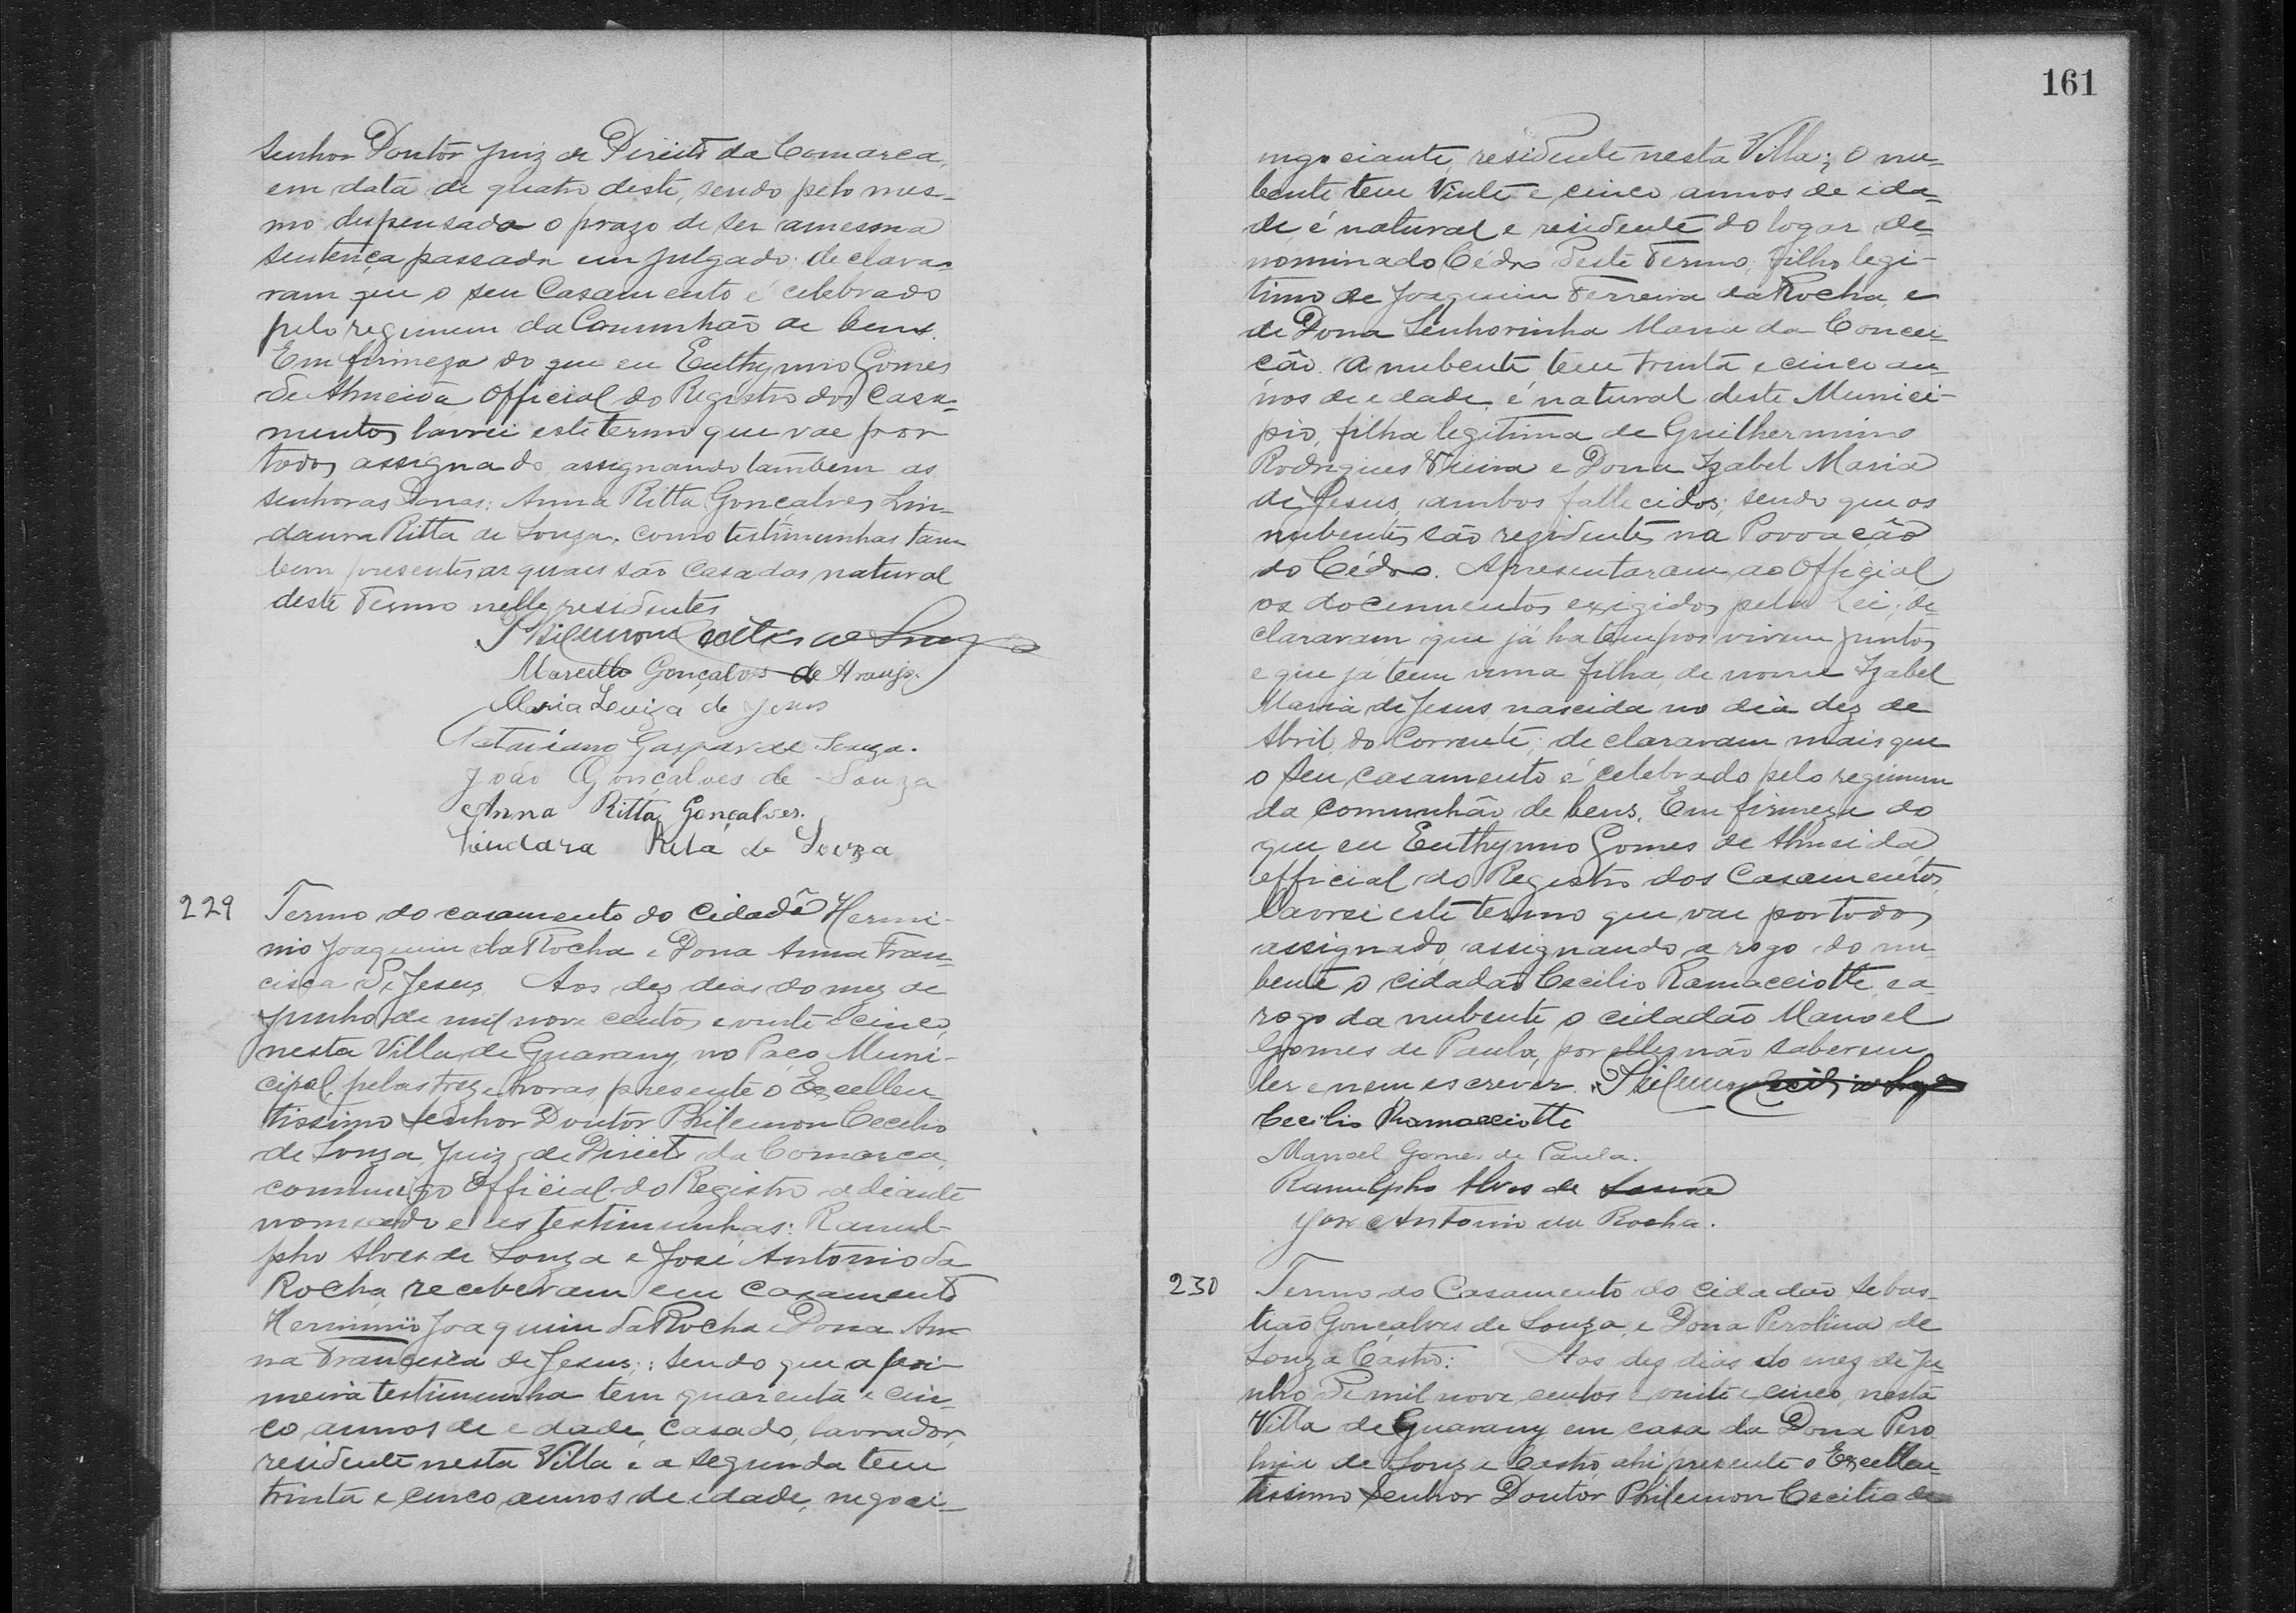 Senhor Doutor Juiz de Direito da Comarca,
em data de quatro deste, sendo pelo mes-
mo dispensado o prazo de ser amesma
sentença passada em julgado; declara-
ram que o seu Casamento é celebrado
pelo regimem da Comunhão de bens.
Em firmeza do que eu Euthymio Gomes
de Almeida Official do Registro dos Casa-
mentos lavrei este termo que vae por
todos assignado, assignando tambem as
senhoras Donas: Anna Ritta Gonçalves, Lin-
daura Ritta de Souza, como testimunhas tam
bem presentes as quaes são Casadas, natural
deste Termo nelle residentes
Philemon Cecilio de Souza
Marcello Gonçalves de Araujo.
Maria Luiza de Jesus
Octaviano Gaspar de Souza.
João Gonçalves de Souza
Anna Ritta Gonçalves.
Lindara Rita de Souza
229 Termo do casamento do Cidadão Hermi-
nio Joaquim da Rocha e Dona Anna Fran-
cisca de Jesus. Aos dez dias do mez de
Junho de mil nove centos e vinte e cinco,
nesta Villa de Guarany, no Paço Muni-
cipal, pelas treze horas, presente o Excellen-
tissimo Senhor Doutor Philemon Cecilio
de Souza, Juiz de Direito da Comarca,
commigo Official do Registro adiante
nomeado e as testimunhas: Ranul-
pho Alves de Souza e José Antonio da
Rocha, receberam em casamento
Herminio Joaquim da Rocha e Dona An-
na Francisca de Jesus; sendo que a pri-
meira testimunha tem quarenta e cin-
co annos de edade, casado, lavrador,
residente nesta Villa e a segunda tem
trinta e cinco annos de idade, negoci-
161
negociante, residente nesta Villa; O nu-
bente tem vinte e cinco annos de ida-
de, é natural e residente do logar de-
nominado Cédro deste Termo, filho legi-
timo de Joaquim Ferreira da Rocha, e
de Dona Senhorinha Maria da Concei-
ção. A nubente tem trinta e cinco an-
nos de edade, é natural deste Munici-
pio, filha legitima de Guilhermino
Rodrigues Vieira e Dona Izabel Maria
de Jesus, ambos fallecidos; sendo que os
nubentes são residentes na Povoação
do Cédro. Apresentaram ao Official
os documentos exigidos pela Lei; de-
clararam que já ha tempos vivem juntos
e que já tem uma filha de nome Izabel
Maria de Jesus nascida no dia dez de
Abril do Corrente; declararam mais que
o seu casamento é celebrado pelo regimem
da comunhão de bens. Em firmeza do
que eu Euthymio Gomes de Almeida
official do Registro dos Casamentos,
lavrei este termo que vae por todos
assignado, assignando a rogo do nu-
bente o cidadão Cecilio Ramacciotte, e a
rogo da nubente o cidadão Manoel
Gomes de Paula, por elles não saberem
ler e nem escrever. Philemon Cecilio de Souza
Cecilio Ramacciotte
Manoel Gomes de Paula.
Ranulpho Alves de Souza
José Antonio da Rocha.
230 Termo do Casamento do cidadão Sebas-
tião Gonçalves de Souza, e Dona Perolina de
Souza Castro: Aos dez dias do mez de Ju-
nho de mil nove centos e vinte e cinco, nesta
Villa de Guarany em casa da Dona Pero
lina de Souza Castro, ahi presente o Excellen-
tissimo Senhor Doutor Philemon Cecilio de